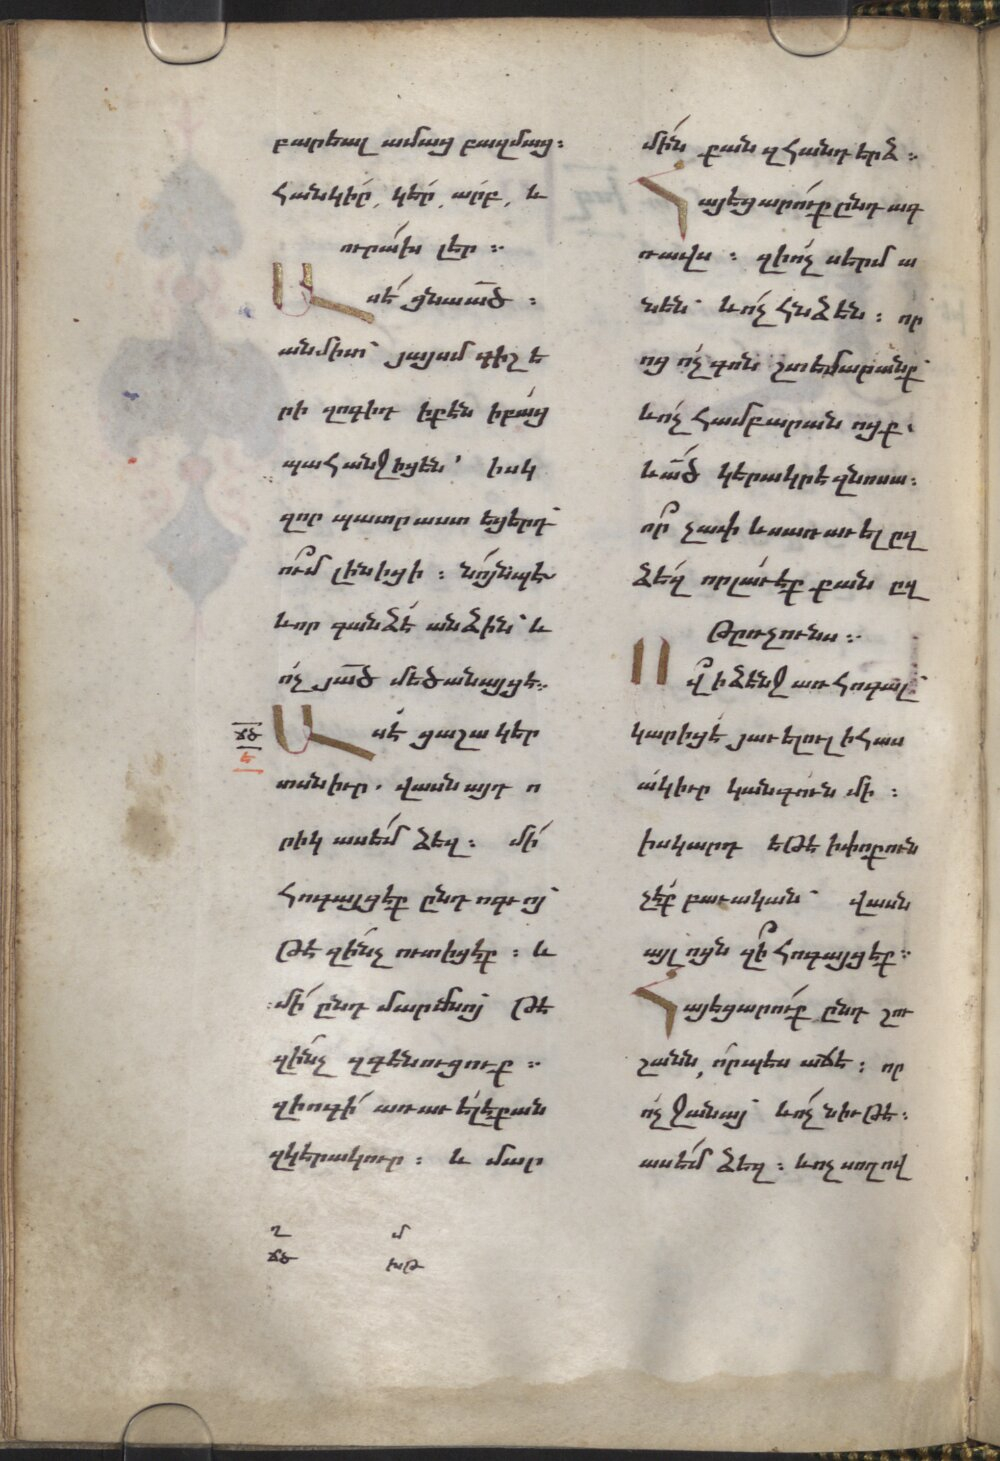 բարեալ ամաց բազմաց։
հանկիր, կեր, արբ, և
ուրախ լեր ։
Ասէ ցնա ած ։
անմիտ՝ յայսմ գիշե
րի զոգիդ իքէն ի բաց
պահանջիցեն՝ իսկ
զոր պատրաստ եցերդ՝
ում լինիցի ։ նոյնպէ
ևոր գանձէ անձին՝ և
ոչ յած մեծանայցէ։
Ասէ ցաշակեր
ճծ
ե
տսնիւր. վասն այդ ո
րիկ ասեմ ձեզ ։ մի
հոգայցէք ընդ ոգւոյ՝
թե զինչ ուտիցէք ։ և
մի ընդ մարմնոյ թե
զինչ զգենուցուք ։
զի ոգի առաւել է քան
զկերակուր ։ և մար
Ղ մ
ճծ խթ
մին քան զհանդերձ ։
Հայեցարուք ընդ ագ
ռավս ։ զի ոչ սերմա
նեն՝ և ոչ հնձեն ։ որ
ոց ոչ գոն շտեմարանք՝
և ոչ համբարանոցք.
և ած կերակրե զնոսա։
որ չափ ևս առաւել ըզ
ձեզ որ լաւ էք քան ըզ
թըռչունս ։
Ո վ ի ձէնջ առ հոգալ՝
կարիցե յաւելուլ ի հաս
ակիւր կանգուն մի ։
իսկ արդ եթե ի փոքուն
չէք բաւական՝ վասն
այլոցն զի հոգայցէք։
Հայեցարուք ընդ շու
շանն, որպես աճե ։ որ
ոչ ջանայ՝ և ոչ նիւթե։
ասեմ ձեզ ։ և ոչ սողով